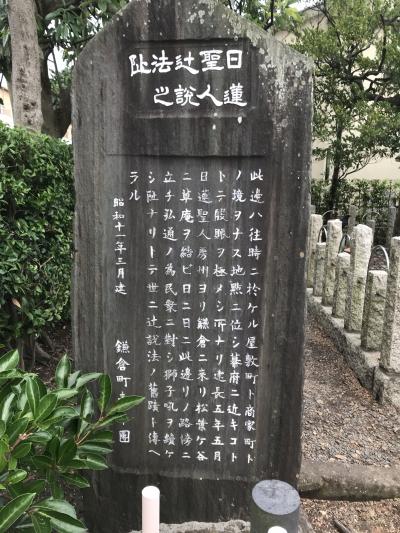 日蓮
聖人
辻説
法之
址
此邊ハ往時ニ於ケル屋敷町ト商家町ト
ノ境ヲナス地點ニ位シ幕府ニ近キコト
トテ殷賑ヲ極メシ所ナリ建長五年五月
日蓮聖人房州ヨリ鎌倉ニ来リ松葉ケ谷
ニ草庵ヲ結ビ日ニ日ニ此邊リノ路傍ニ
立チ弘通ノ為民衆ニ對シ獅子吼ヲ續ケ
シ址ナリトテ世ニ辻説法ノ舊蹟ト傳ヘ
ラル
昭和十一年三月建
鎌倉町青年團